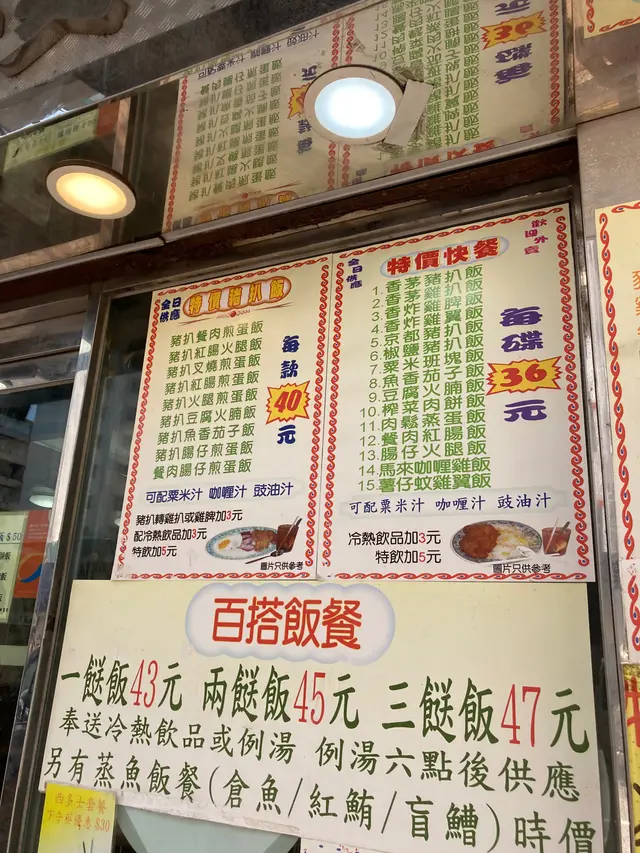 全日供應
特價豬扒飯
豬扒餐肉煎蛋飯
豬扒紅腸火腿飯
豬扒叉燒煎蛋飯
豬扒紅腸煎蛋飯
豬扒火腿煎蛋飯
豬扒豆腐火腩飯
豬扒魚香茄子飯
餐肉腸仔煎蛋飯
每款
40
元
可配粟米汁 咖喱汁 豉油汁
豬扒轉雞扒或雞髀加3元
配冷熱飲品加3元
特飲加5元
圖片只供參考
全日供應
特價快餐
歡迎外賣
1. 香茅豬扒飯
2. 香茅雞扒飯
3. 香炸雞髀飯
4. 香炸雞翼飯
5. 京都豬扒飯
6. 椒鹽豬扒飯
7. 粟米班塊飯
8. 魚香茄子飯
9. 豆腐火腩飯
10. 榨菜肉餅飯
11. 肉鬆蒸蛋飯
12. 餐肉紅腸飯
13. 腸仔火腿飯
14. 馬來咖喱雞飯
15. 薯仔炆雞翼飯
每碟
36
元
可配粟米汁 咖喱汁 豉油汁
冷熱飲品加3元
特飲加5元
圖片只供參考
百搭飯餐
一餸飯43元 兩餸飯45元 三餸飯47元
奉送冷熱飲品或例湯 例湯六點後供應
另有蒸魚飯餐(倉魚/紅鮪/盲鰽)時價
西多士套餐
下午茶優惠$30